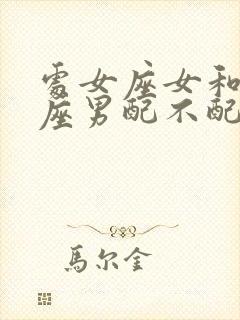 處女座女和
座男配不配
馬尔金